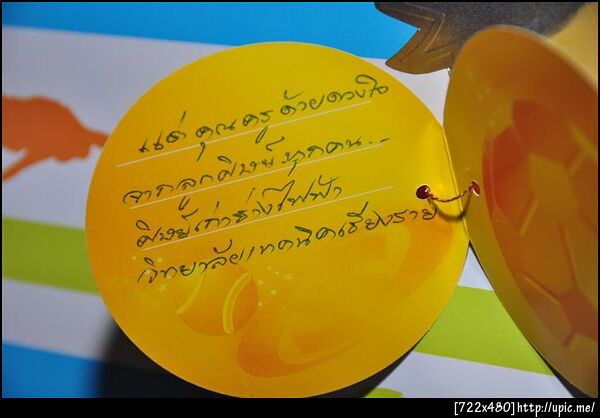 แด่ คุณครูด้วยดวงใจ
จากลูกศิษย์ทุกคน..
ศิษย์เก่าช่างไฟฟ้า
วิทยาลัยเทคนิคเชียงราย
[722x480]http://upic.me/